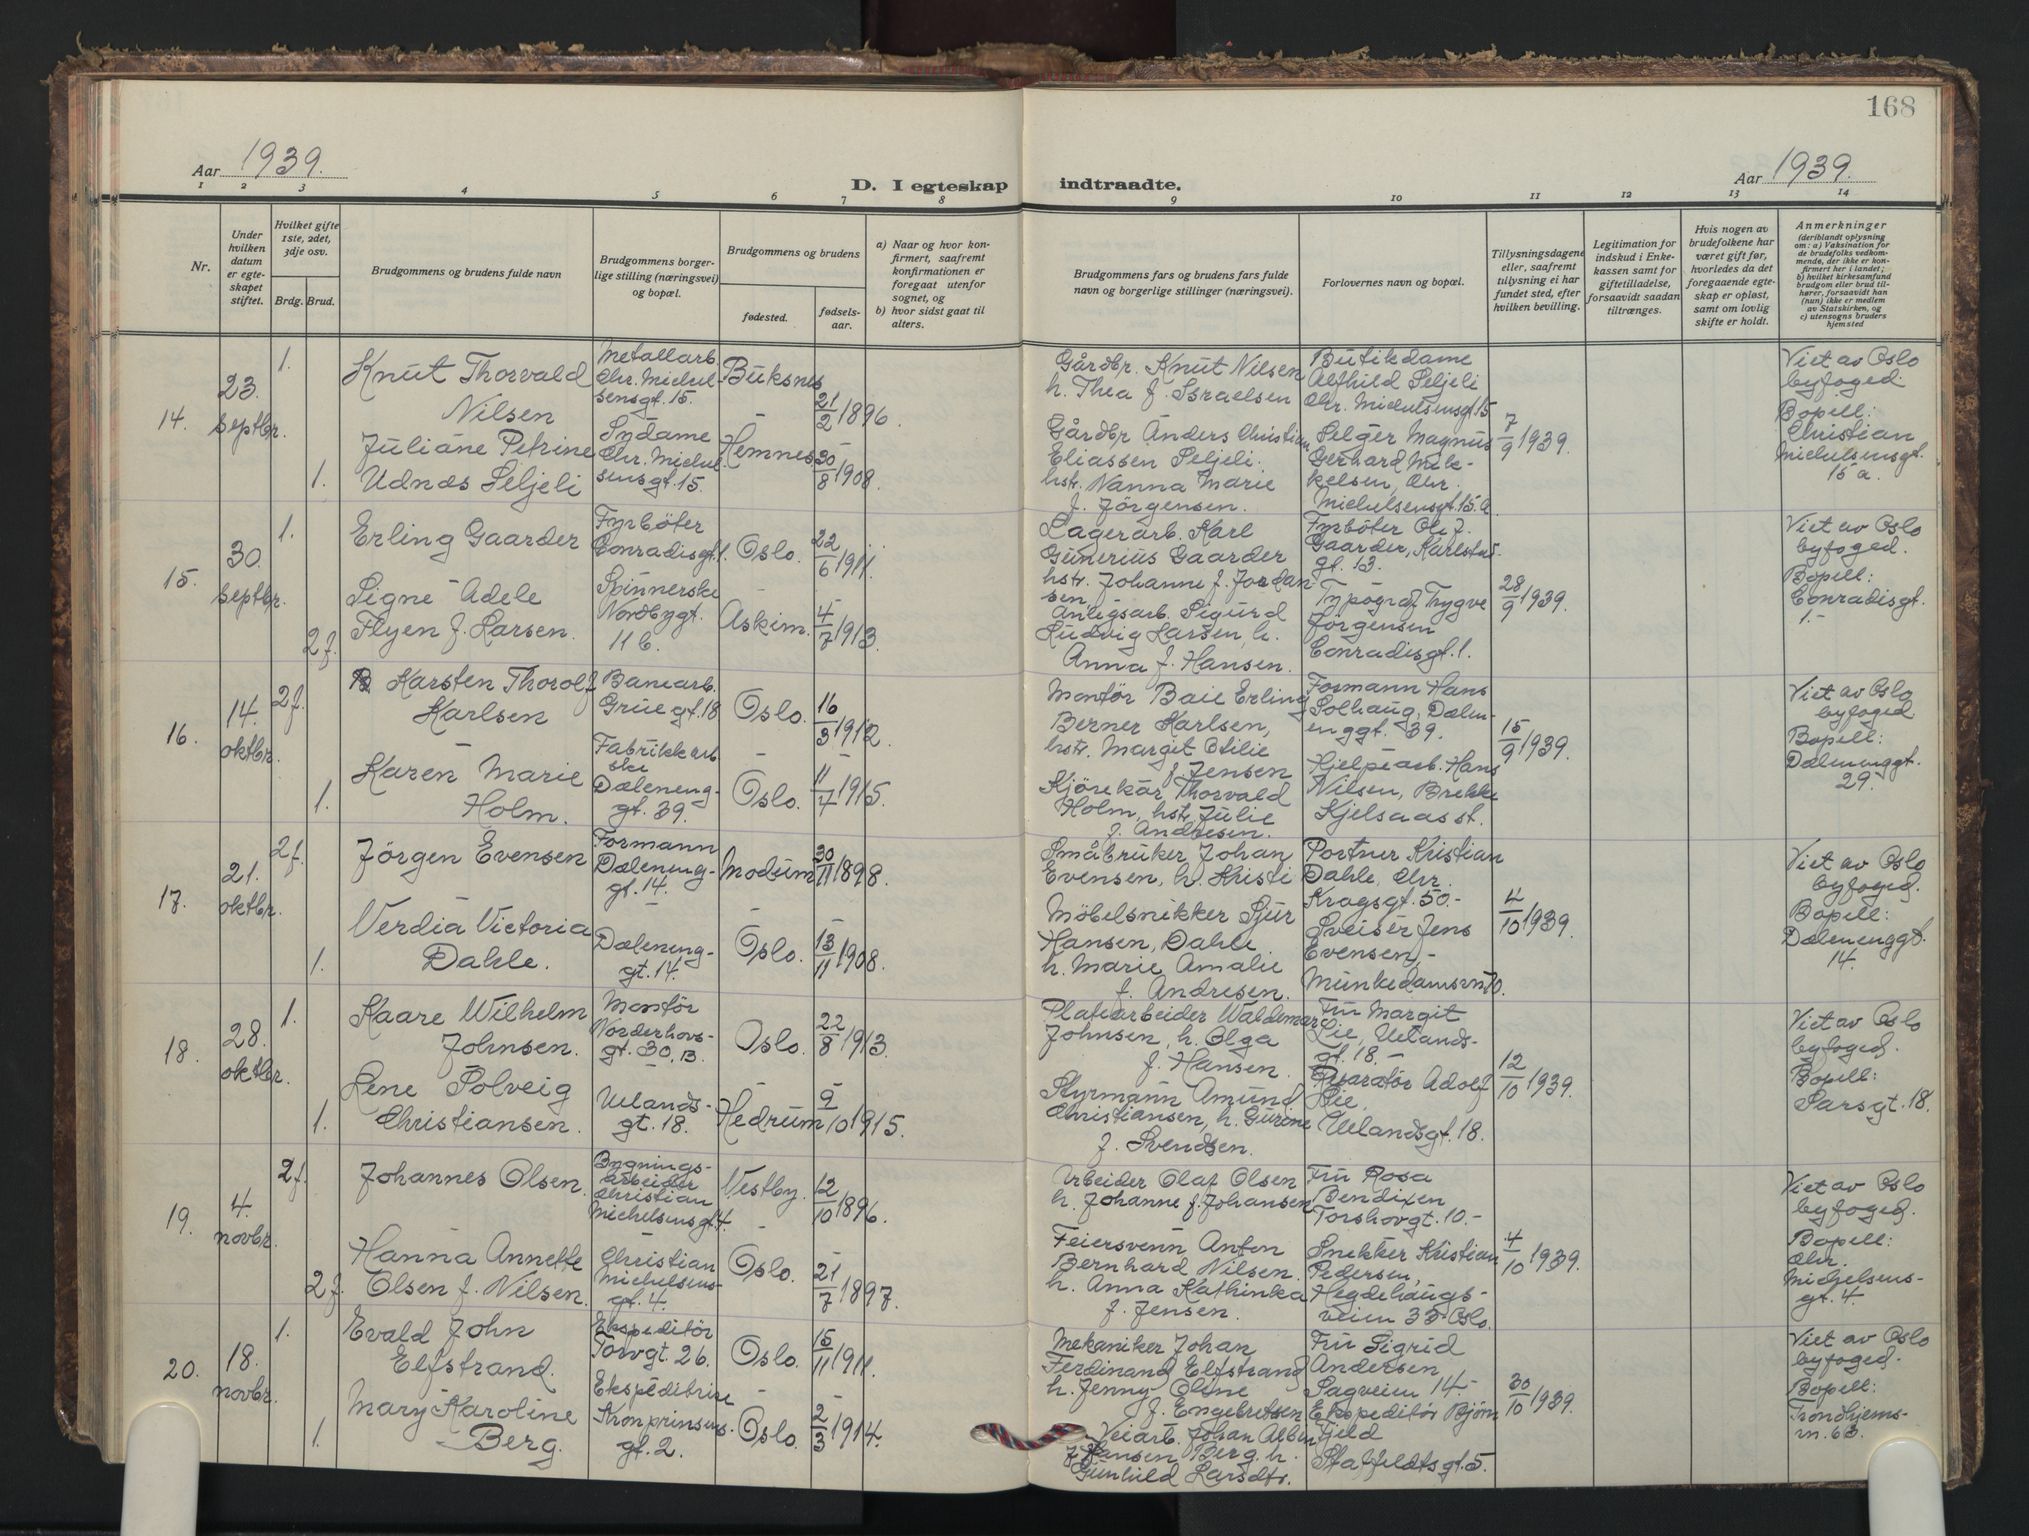 168
Aar 1939.
D. I egteskap indtraadte.
Aar 1939.
1 2 3 4 5 6 7 8 9 10 11 12 13 14
Nr.
Under
hvilken
datum
er egte-
skapet
stiftet.
Hvilket gifte
1ste, 2det,
3dje osv.
Brdg. Brud.
Brudgommens og brudens fulde navn
Brudgommens borger-
lige stilling (næringsvei)
og bopæl.
Brudgommens og brudens
fødested.
fødsels-
aar.
a) Naar og hvor kon-
firmert, saafremt
konfirmationen er
foregaat utenfor
sognet, og
b) hvor sidst gaat til
alters.
Brudgommens fars og brudens fars fulde
navn og borgerlige stillinger (næringsvei).
Forlovernes navn og bopæl.
Tillysningsdagene
eller, saafremt
tillysning ei har
fundet sted, efter
hvilken bevilling.
Legitimation for
indskud i Enke-
kassen samt for
giftetilladelse,
forsaavidt saadan
tiltrænges.
Hvis nogen av
brudefolkene har
været gift før,
hvorledes da det
foregaaende egte-
skap er opløst,
samt om lovlig
skifte er holdt.
Anmerkninger
(deriblandt oplysning
om: a) Vaksination for
de brudefolks vedkom-
mende, der ikke er kon-
firmert her i landet;
b) hvilket kirkesamfund
brudgom eller brud til-
hører, forsaavidt han
(hun) ikke er medlem
av Statskirken, og
c) utensogns bruders
hjemsted
14.
23.
septbr.
1.
1.
Knut Thorvald
Nilsen
Juliane Petrine
Udnæs Seljeli
Metallarb
Chr. Michel-
sensgt. 15.
Sydame
Chr. Michel
sensgt. 15.
Buksnes
-
Hemnes
21/2 1896.
30/8 1908.
Gårdbr. Knut Nilsen
h. Thea f. Israelsen
Gårdbr Anders Christian
Eliassen Seljeli.
hstr. Nanna Marie
f. Jörgensen.
Butikdame
Alfhild Seljeli
Chr. Michelsensgt. 15
Selger Magnus
Gerhard Mik-
kelsen, Chr.
Michelsensgt. 15. a
7/9 1939.
Viet av Oslo
byfoged.
Bopell:
Christian
Michelsensgt.
15 a.
15.
30.
septbr.
1.
2 f.
Erling Gaarder
Signe Adele
Flyen f. Larsen.
Fyrböter
Conradisgt. 1.
Spinnerske
Nordbygt.
11 b.
Oslo.
-
Askim.
22/6 1911.
4/7 1913.
Lagerarb. Karl
Gunerius Gaarder
hstr. Johanne f. Jordan-
sen,
Anligsarb. Sigurd
Ludvig Larsen, h.
Anna f. Hansen.
Fyrböter Ole J.
Gaarder, Karlstad-
gt. 13.
Typograf Trygve
Jörgensen
Conradisgt. 1.
28/9 1939.
Viet av Oslo
byfoged.
Bopell:
Conradisgt.
1.-
16.
14.
oktbr.
2 f.
1.
Karsten Thorolf
Karlsen
Karen Marie
Holm.
Banearb.
Grüe gt. 18
Fabrikkarb
ske
Dæleneng-
gt. 39.
Oslo.
-
Oslo.
16/3 1912.
11/7 1915.
Montör Baie Erling
Berner Karlsen,
hstr. Margit Otilie
f. Jensen
Kjörekar Thorvald
Holm, hstr. Julie
f. Andresen.
Formann Hans
Solhaug, Dælen-
enggt. 39.
Hjelpearb. Hans
Nilsen, Brekke
Kjelsaas st.
15/9 1939.
Viet av Oslo
byfoged
Bopell:
Dælenenggt.
29.
17.
21.
oktbr.
2 f.
1.
Jörgen Evensen
Verdia Victoria
Dahle.
Formann
Dæleneng-
gt. 14.
-
Dæleneng-
gt. 14.
Modum
-
Oslo.
30/11 1898.
13/11 1908.
Småbruker Johan
Evensen, h. Kristi
Möbelsnikker Sjur
Hansen, Dahle
h. Marie Amalie
f. Andresen.
Portner Kristian
Dahle, Chr.
Krogsgt. 50.-
Sveiser Jens
Evensen,-
Munkedamsvn 70.
4/10 1939.
Viet av Oslo
byfoged.
Bopell:
Dælenenggt.
14.
18.
28.
oktbr.
1.
1.
Kaare Wilhelm
Johnsen.
Lene Solveig
Christiansen.
Montör
Norderhovs-
gt. 30, B.
Uelands-
gt. 18.
Oslo.
-
Hedrum
22/8 1913.
9/10 1915.
Platearbeider Waldemar
Johnsen, h. Olga
f. Hansen.
Styrmann Amund
Christiansen, h. Gurine
f. Svendsen.
Fru Margit
Lie, Uelands-
gt. 18.-
Reparatör Adolf
Lie
Uelandsgt. 18.
12/10 1939.
Viet av Oslo
byfoged.
Bopell:
Sarsgt. 18.
19.
4.
novbr.
2 f.
2 f.
Johannes Olsen.
Hanna Annette
Olsen f. Nilsen.
Bygnings-
arbeider
Christian
Michelsensgt. 4.
Christian
Michelsens-
gt. 4.
Vestby.
-
Oslo.
12/10 1896.
21/7 1897.
Arbeider Olaf Olsen
h. Johanne f. Johansen
Feiersvenn Anton
Bernhard Nilsen.
h. Anna Kathinka
f. Jensen.
Fru Rosa
Bendixen
Torshovgt. 10.-
Snekker Kristian
Pedersen,
Hegdehaugs-
veien 33 Oslo.
4/10 1939.
Viet av Oslo
byfoged.
Bopell:
Chr.
Michelsens-
gt. 4.
20.
18.
novbr.
1.
1.
Evald John
Elfstrand.
Mary Karoline
Berg.
Ekspeditör
Torvgt. 26.
Ekspeditrise
Kronprinsens-
gt. 2.
Oslo.
-
Oslo.
15/11 1911.
2/3 1914.
Mekaniker Johan
Ferdinand Elfstrand
h. Jenny Oline
f. Engebretsen
Veiarb. Johan Albin
Hansen Berg. h.
Gunhild Larsdtr.
Fru Sigrid
Andersen
Sagveien 14.-
Ekspeditör Björn
Fjeld
Stalfeldtsgt. 5.
30/10 1939.
Viet av Oslo
byfoged.
Bopell:
Trondhjems-
vn. 63.